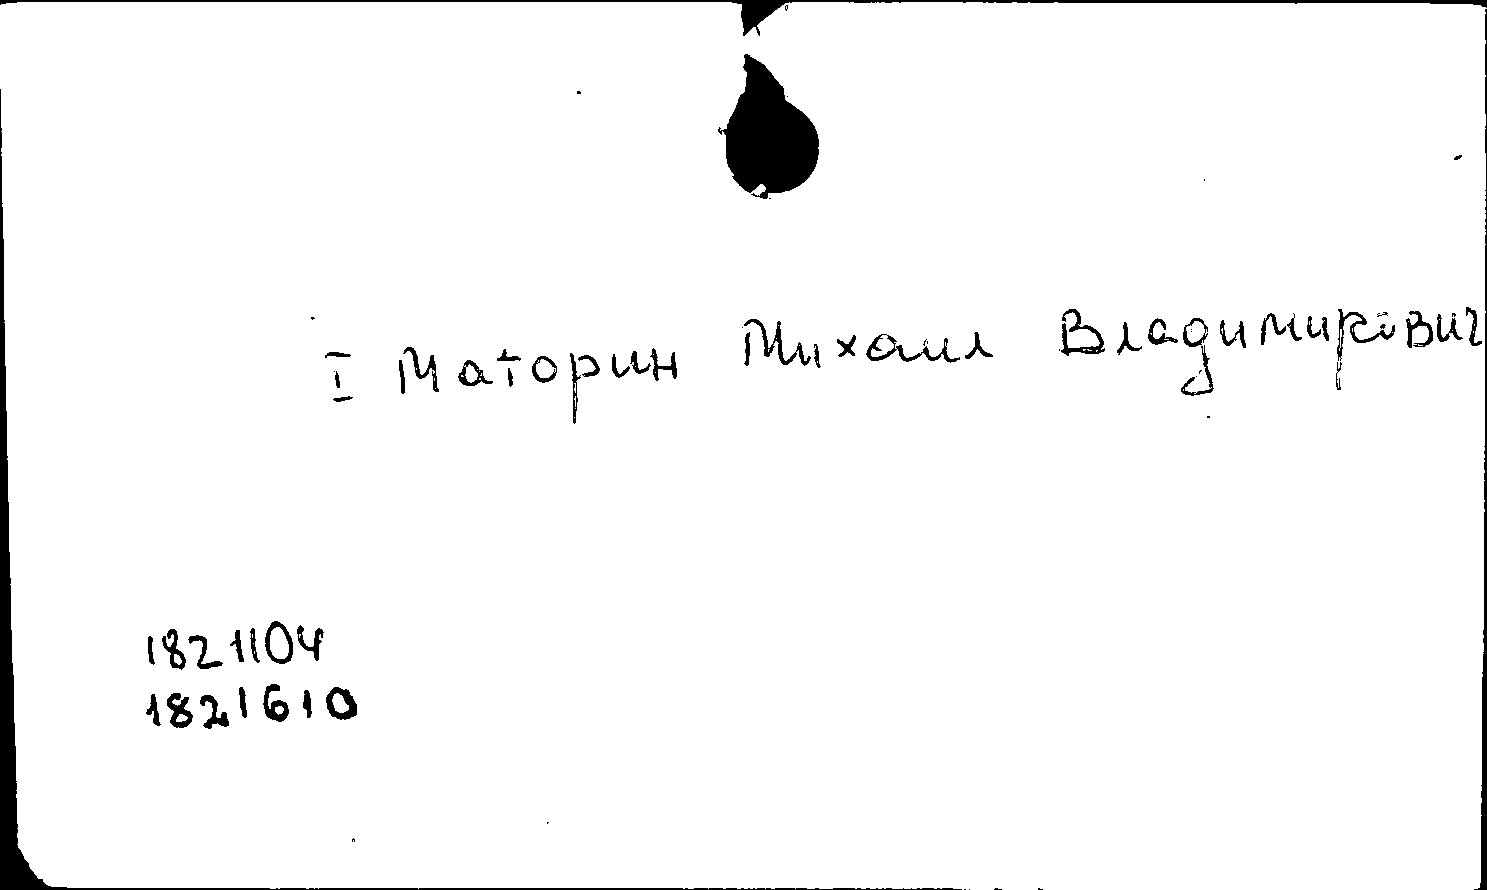 I Маторин Михаил Владимирович
1821104
1821610